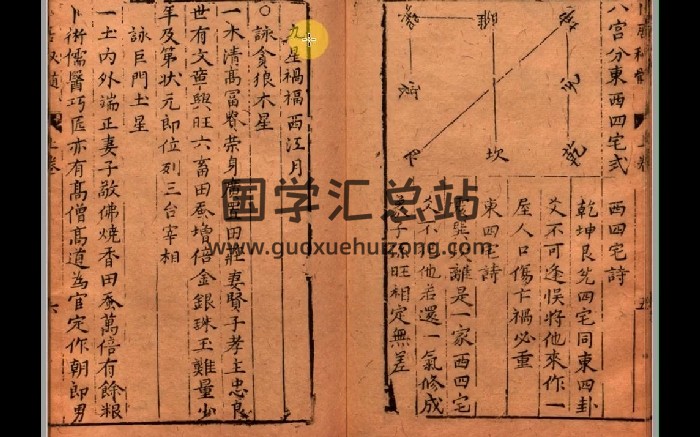 八宮分東西四宅式
乾
坎
離
西四宅詩
乾坤艮兌四宅同東四卦
爻不可逢悞將他來作一
屋人口傷亡禍必重
東四宅詩
離是一家西四宅
爻不他若還一氣修成
子旺相定無差
九星禍福西江月
○詠貪狼木星
一木清髙富貴荣身田莊妻賢子孝主忠良
世有文章興旺六畜田蚕增倍金銀珠玉難量少
年及第狀元郎位列三台宰相
詠巨門土星
一土内外端正妻子敬佛燒香田蚕萬倍有餘粮
術儒醫巧匠亦有髙僧髙道為官定作朝郎男
六
国学汇总站
www.guoxuehuizong.com